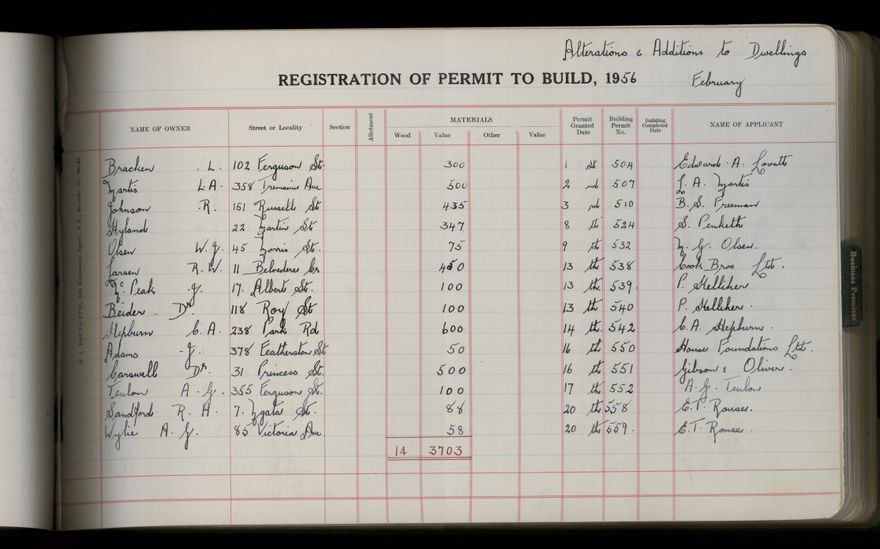 Alterations & Additions to Dwellings
REGISTRATION OF PERMIT TO BUILD, 1956 February
NAME OF OWNER Street or Locality Section Allotment MATERIALS Wood Value Other Value Permit Granted Date Building Permit No. Building Completed Date NAME OF APPLICANT
Bracken L. 102 Ferguson St. 300 1 st 504 Edward A. Lovatt
Martis L.A. 358 Tremaine Ave 500 2 nd 507 L. A. Martis
Johnson R. 151 Russell St 435 3 rd 510 B. S. Freeman
Hyland 22 Martin St 347 8 th 524 S. Penketh
Olsen W.G. 45 Morris St. 75 9 th 532 Olsen.
Larsen R.W. 11 Belvedere Cr 450 13 th 538 Cook Bros Ltd.
Mc Peak J. 17. Albert St. 100 13 th 539. P. Kelliher
Beider. Dr. 118 Roy St 100 13 th 540 P. Kelliher.
Hepburn C.A. 238 Park Rd 600 14 th 542 C.A. Hepburn.
Adams J. 378 Featherston St 50 16 th 550 House Foundations Ltd.
Carswell Dr. 31 Princess St. 500 16 th 551 Gibson & Oliver.
Teulon A.G. 355 Ferguson St. 100 17 th 552 A.G. Teulon
Sandford R. A. 7. Ngata St. 88 20 th 558 E.T. Rouse.
Wylie A.G. 85 Victoria Ave. 58 20 th 559. E.T. Rouse.
14 3703
Business Premises